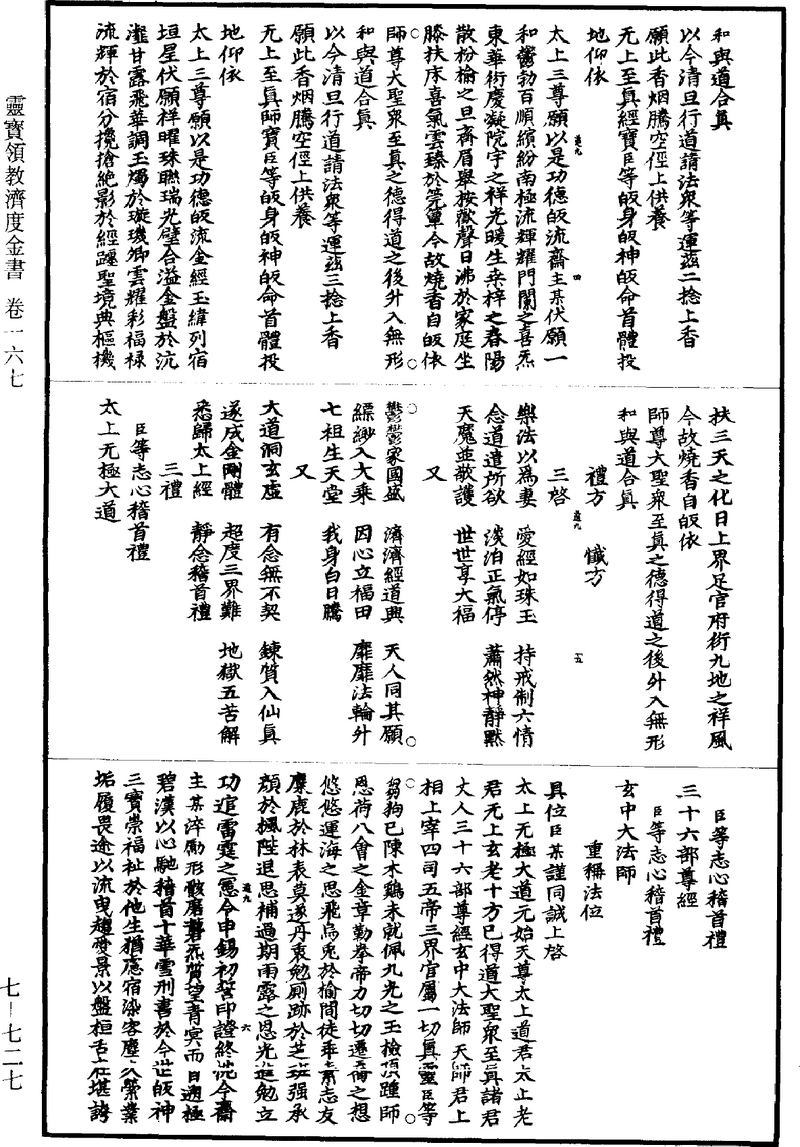 靈寶領教濟度金書 卷一六七
七—七二七
和與道合眞
以今清旦行道請法衆等運茲二捻上香
願此香烟騰空徑上供養
无上至眞經寶臣等皈身皈神皈命首體投
地仰依
太上三尊願以是功德皈流齋主某伏願一
和響勃百順繽紛南極流輝耀門闌之喜炁
東華衍慶凝院宇之祥光暖生桒梓之春陽
散枌榆之旦齊眉舉按歡聲日沸於家庭坐
膝扶床喜氣雲臻於筦簟今故燒香自皈依
師尊大聖衆至眞之德得道之後升入無形
和與道合眞
以今清旦行道請法衆等運茲三捻上香
願此香烟騰空徑上供養
无上至眞師寶臣等皈身皈神皈命首體投
地仰依
太上三尊願以是功德皈流金經玉緯列宿
垣星伏願祥曜珠聯瑞光璧合溢金盤於沆
瀣甘露飛華調玉燭於璇璣卿雲耀彩福祿
流輝於宿分攙搶絶影於經躔聖境典樞機
扶三天之化日上界足官府衍九地之祥風
今故燒香自皈依
師尊大聖衆至眞之德得道之後升入無形
和與道合眞
禮方 懺方
三啓
樂法以爲妻 愛經如珠玉 持戒制六情
念道遣所欲 淡泊正氣停 蕭然神靜默
天魔並敬護 世世享大福
又
鬱鬱家國盛 濟濟經道興 天人同其願
縹緲入大乘 因心立福田 靡靡法輪升
七祖生天堂 我身白日騰
又
大道洞玄虛 有念無不契 鍊質入仙眞
遂成金剛體 超度三界難 地獄五苦解
悉歸太上經 靜念稽首禮
三禮
臣等志心稽首禮
太上无極大道
臣等志心稽首禮
三十六部尊經
臣等志心稽首禮
玄中大法師
重稱法位
具位臣某謹同誠上啓
太上无極大道元始天尊太上道君太上老
君无上玄老十方已得道大聖衆至眞諸君
丈人三十六部尊經玄中大法師天師君上
相上宰四司五帝三界官屬一切眞靈臣等
芻狗已陳木鷄未就佩九光之玉檢頂踵師
恩荷八會之金章勤拳帝力切切遷喬之想
悠悠運海之思飛烏兎於榆間徒乖素志友
麋鹿於林表莫遂丹衷勉厠跡於芝班强承
顔於楓陛退思補過期雨露之恩光進勉立
功逭雷霆之愆今申錫初盟印證終洗今齋
主某淬勵形骸磨礱炁質望青冥而目遡極
碧漢以心馳稽首十華雲刑書於今世皈神
三寶崇福祉於他生猶應宿染客塵久縈業
垢履畏途以流曳趨變景以盤桓舌在堪誇